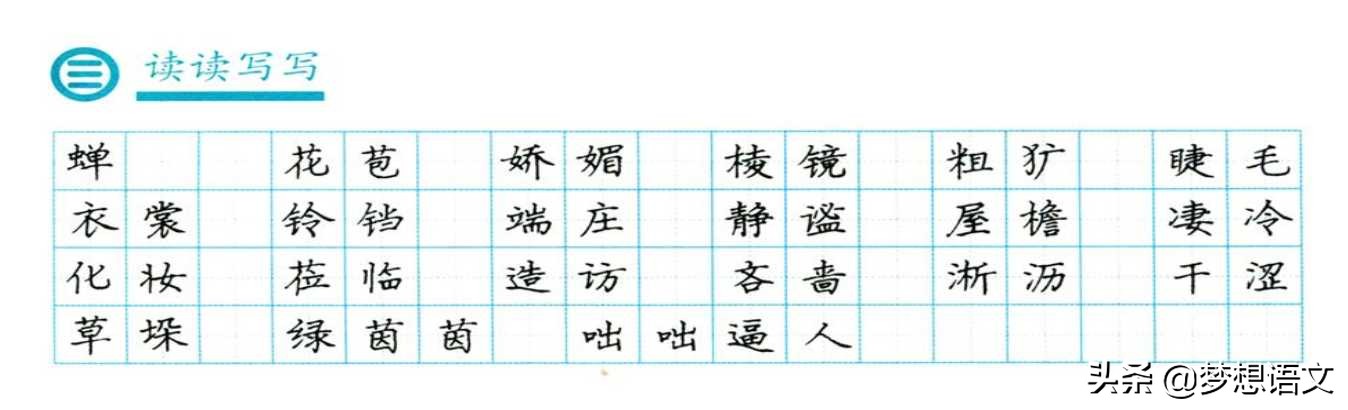 读读写写
蝉 花苞 娇媚 棱镜 粗犷 睫毛
衣裳 铃铛 端庄 静谧 屋檐 凄冷
化妆 莅临 造访 吝啬 淅沥 干涩
草垛 绿茵茵 咄咄逼人
头条 @梦想语文